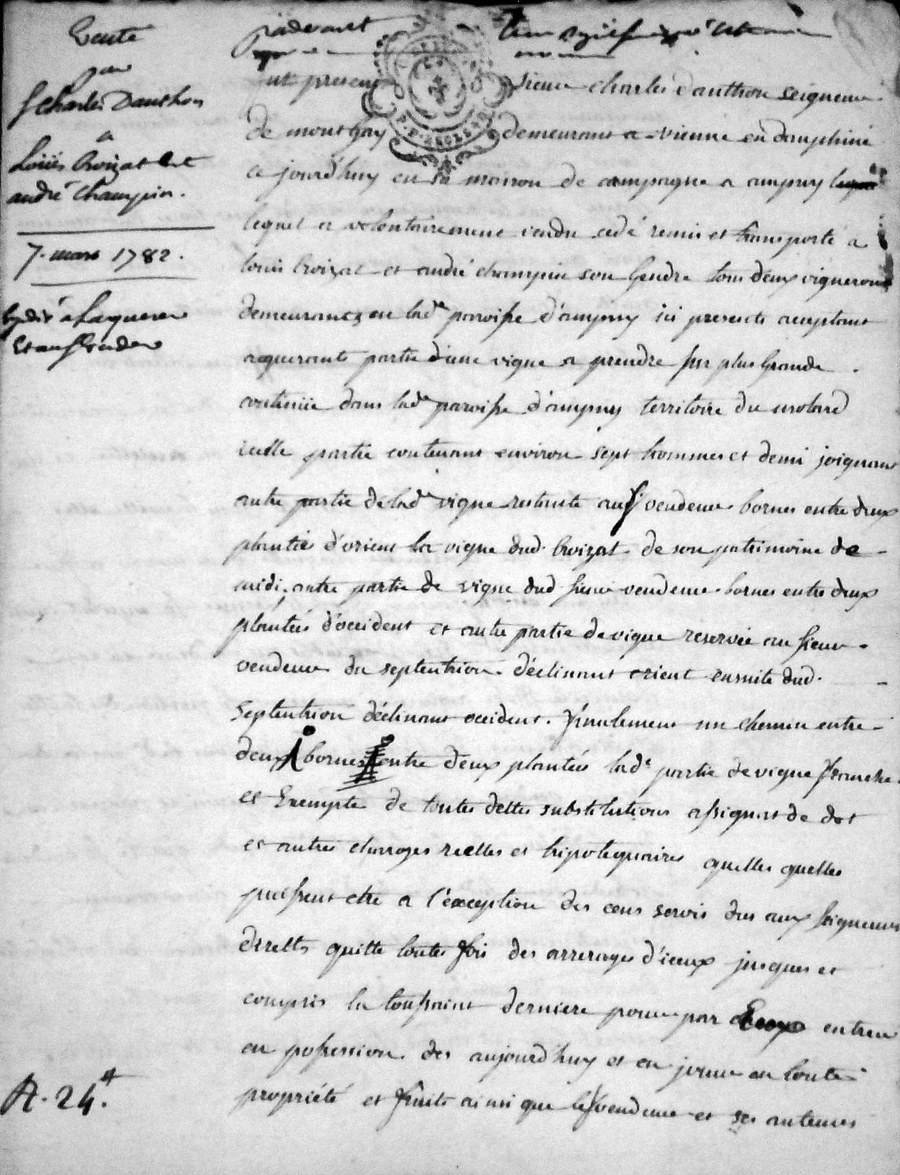 Vente
par
S Charles Dauthon
a
Louis Croizat et
andré Champin.
7. mars 1782.
Expdié a Laquereur
pardevant
fut present sieur charles dauthon seigneur
de montgay demeurant a vienne en dauphiné
ce jourd'huy en sa maison de campagne a ampuy
lequel a volontairement vendu cedé remis et transporté a
louis Croizat et andré champin son Gendre tous deux vignerons
demeurants en lade paroisse d'ampuy ici presents acceptant
acquerants partie d'une vigne a prendre sur plus Grande
contenüe dans lade paroisse d'ampuy territoire du molard
icelle partie contenant environ sept hommes et demi joignant
autre partie de lade vigne restante au S vendeur bornes entre deux
plantées d'orient la vigne dud. Croizat de son patrimoine de
midi, autre partie de vigne dud sieur vendeur bornes entre deux
plantées d'occident et autre partie de vigne reservée au sieur
vendeur du septentrion déclinant orient ensuite dud.
Septentrion déclinant occident. finalement un chemin entre
deux bornes entre deux plantées lade partie de vigne franche
et Exempte de toutes dettes substitutions assignat de dot
et autres charges reelles et hipotequaires quelles quelles
puissent etre a l'exception des cens servis dus aux seigneurs
directs quitte toutes fois des arrerages d'iceux jusques et
compris la toussaint derniere pour par Eux entrer
en possession des aujourd'huy et en jouir en toute
propriété et fruits ainsi que le S vendeur et ses auteurs
R. 24#.